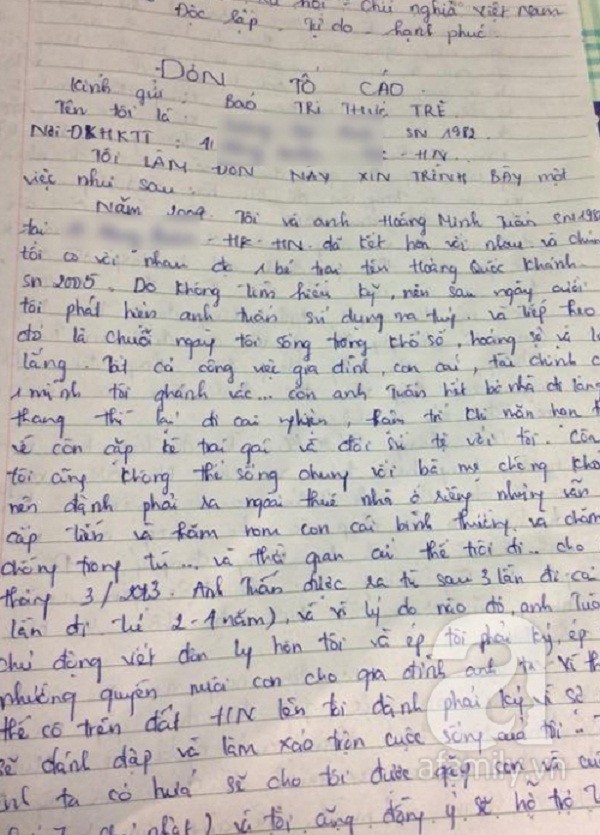 hội - Chủ nghĩa Việt Nam
Độc lập - Tự do - hạnh phúc.
ĐƠN TỐ CÁO
Kính gửi: Báo TRI THỨC TRẺ
Tên tôi là SN 1982
Nơi ĐKHKTT : 41 - HN.
TÔI LÀM ĐƠN NÀY XIN TRÌNH BÀY một
việc như sau:
Năm Tôi và anh Hoàng Minh Tuấn SN
tại - HK - HN. đã kết hôn với nhau và
tôi có với nhau đc 1 bé trai tên Hoàng Quốc Khánh
SN 2005. Do không tìm hiểu kỹ, nên sau ngày cưới
tôi phát hiện anh tuấn sử dụng ma túy. và tiếp theo
đó là chuỗi ngày tôi sống trong khổ sở, hoảng sợ và lo
lắng. Tất cả công việc gia đình, con cái, tài chính
1 mình tôi ghánh vác... còn anh Tuấn hết bỏ nhà đi lang
thang thì lại đi cai nghiện, thậm trí khi nặn hơn
về còn cặp kè trai gái và đối sử tệ với tôi. Còn
tôi cũng không thể sống chung với bố mẹ chồng
nên đành phải ra ngoài thuê nhà ở riêng nhưng vẫn
cấp tiền và thăm nom con cái bình thường, và chăm
chồng trong tù ... và thời gian cứ thế trôi đi.. cho
tháng 3/2013. Anh Tuấn được ra tù sau 3 lần đi cai
lần đi từ 2-4 năm), và vì lý do nào đó, anh
chủ động viết đơn ly hôn tôi và ép tôi phải ký, ép
nhường quyền nuôi con cho gia đình anh ta. Vì
thế cô trên đất HN lên tôi đành phải ký vì sợ
sẽ đánh đập và làm xáo trộn cuộc sống của tôi..
anh ta có hứa sẽ cho tôi được gặp con và
nhật) và tôi cũng đồng ý sẽ hỗ trợ
a
afamily.vn